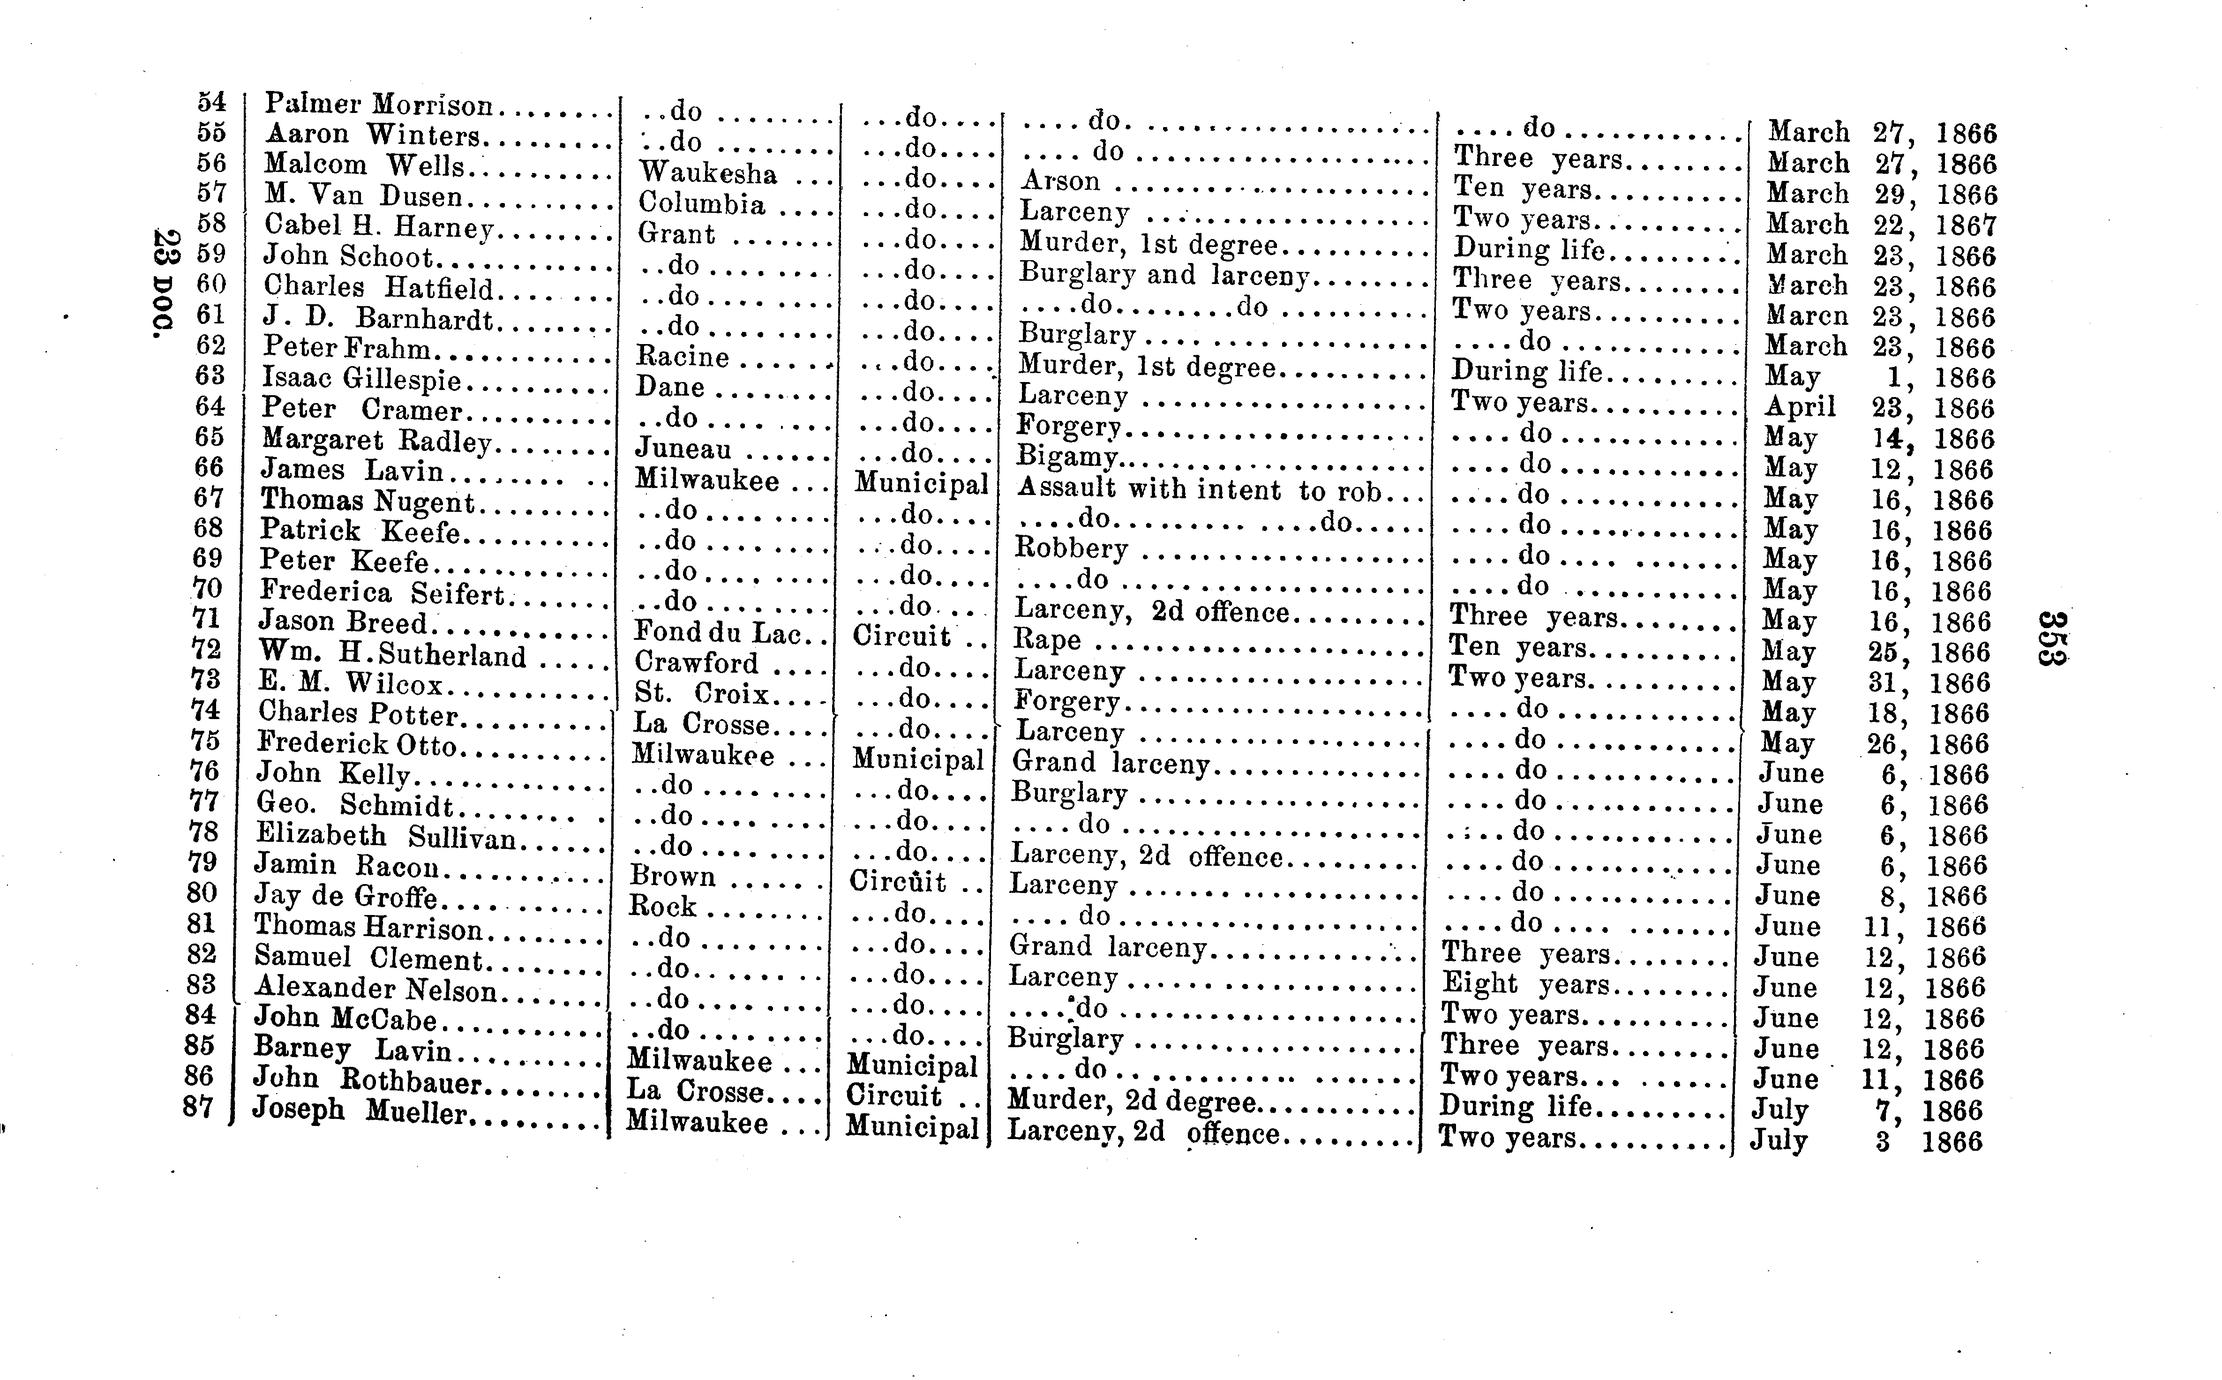 54 Palmer Morrison........ ..do ........ ...do.... ....do. .................... ....do............ March 27, 1866
55 Aaron Winters......... ..do ........ ...do.... .... do .................... Three years........ March 27, 1866
56 Malcom Wells.......... Waukesha ... ...do.... Arson ...................... Ten years.......... March 29, 1866
57 M. Van Dusen.......... Columbia .... ...do.... Larceny .................... Two years.......... March 22, 1867
58 Cabel H. Harney........ Grant ....... ...do.... Murder, 1st degree.......... During life......... March 23, 1866
59 John Schoot............ ..do........ ...do.... Burglary and larceny........ Three years........ March 23, 1866
60 Charles Hatfield........ ..do........ ...do.... ....do........do .......... Two years.......... Marcn 23, 1866
61 J. D. Barnhardt........ ..do........ ...do.... Burglary.................... ....do ............ March 23, 1866
62 Peter Frahm............ Racine ...... ...do.... Murder, 1st degree.......... During life......... May 1, 1866
63 Isaac Gillespie.......... Dane ........ ...do.... Larceny .................... Two years.......... April 23, 1866
64 Peter Cramer.......... ..do........ ...do.... Forgery..................... ....do............ May 14, 1866
65 Margaret Radley........ Juneau ...... ...do.... Bigamy...................... ....do............ May 12, 1866
66 James Lavin.......... Milwaukee ... Municipal Assault with intent to rob... ....do............ May 16, 1866
67 Thomas Nugent......... ..do........ ...do.... ....do......... ....do..... ....do............ May 16, 1866
68 Patrick Keefe.......... ..do........ ...do.... Robbery .................... ....do............ May 16, 1866
69 Peter Keefe............ ..do........ ...do.... ....do ..................... ....do............ May 16, 1866
70 Frederica Seifert....... ..do........ ...do.... Larceny, 2d offence......... Three years........ May 16, 1866
71 Jason Breed............ Fond du Lac.. Circuit .. Rape ....................... Ten years.......... May 25, 1866
72 Wm. H. Sutherland ..... Crawford .... ...do.... Larceny .................... Two years.......... May 31, 1866
73 E. M. Wilcox........... St. Croix.... ...do.... Forgery..................... ....do............ May 18, 1866
74 Charles Potter.......... La Crosse.... ...do.... Larceny .................... ....do............ May 26, 1866
75 Frederick Otto.......... Milwaukee ... Municipal Grand larceny............... ....do............ June 6, 1866
76 John Kelly............. ..do ........ ...do.... Burglary .................... ....do............ June 6, 1866
77 Geo. Schmidt......... ..do........ ...do.... ....do ..................... ....do............ June 6, 1866
78 Elizabeth Sullivan...... ..do........ ...do.... Larceny, 2d offence......... ....do............ June 6, 1866
79 Jamin Racou............ Brown ...... Circuit .. Larceny ..................... ....do ............ June 8, 1866
80 Jay de Groffe........... Rock ........ ...do.... ....do...................... ....do............ June 11, 1866
81 Thomas Harrison........ ..do ........ ...do.... Grand larceny............... Three years........ June 12, 1866
82 Samuel Clement........ ..do........ ...do.... Larceny..................... Eight years........ June 12, 1866
83 Alexander Nelson....... ..do ........ ...do.... ....do ..................... Two years.......... June 12, 1866
84 John McCabe........... ..do ........ ...do.... Burglary ................... Three years........ June 12, 1866
85 Barney Lavin.......... Milwaukee ... Municipal ....do ..................... Two years......... June 11, 1866
86 John Rothbauer........ La Crosse.... Circuit .. Murder, 2d degree........... During life......... July 7, 1866
87 Joseph Mueller......... Milwaukee ... Municipal Larceny, 2d offence......... Two years.......... July 3 1866
23 DOC.
353